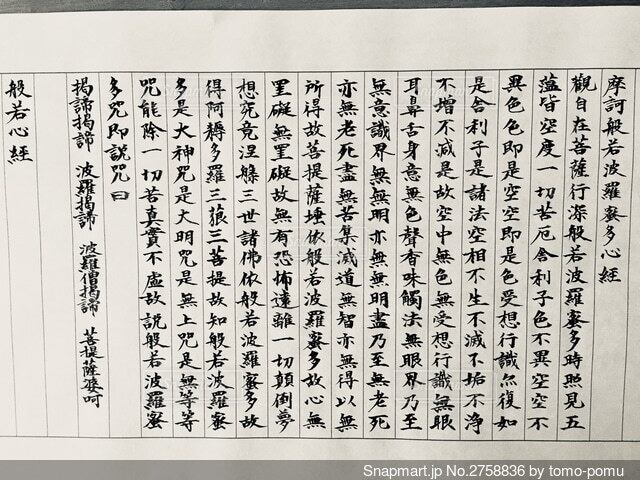 摩訶般若波羅蜜多心經
觀自在菩薩行深般若波羅蜜多時照見五
蘊皆空度一切苦厄舎利子色不異空空不
異色色即是空空即是色受想行識亦復如
是舎利子是諸法空相不生不滅不垢不浄
不増不減是故空中無色無受想行識無眼
耳鼻舌身意無色聲香味觸法無眼界乃至
無意識界無無明亦無無明盡乃至無老死
亦無老死盡無苦集滅道無智亦無得以無
所得故菩提薩埵依般若波羅蜜多故心無
罣礙無罣礙故無有恐怖遠離一切顛倒夢
想究竟涅槃三世諸佛依般若波羅蜜多故
得阿耨多羅三藐三菩提故知般若波羅蜜
多是大神咒是大明咒是無上咒是無等等
咒能除一切苦真實不虚故説般若波羅蜜
多咒即説咒曰
揭諦揭諦 波羅揭諦 波羅僧揭諦 菩提薩婆呵
般若心經
Snapmart.jp No.2758836 by tomo-pomu